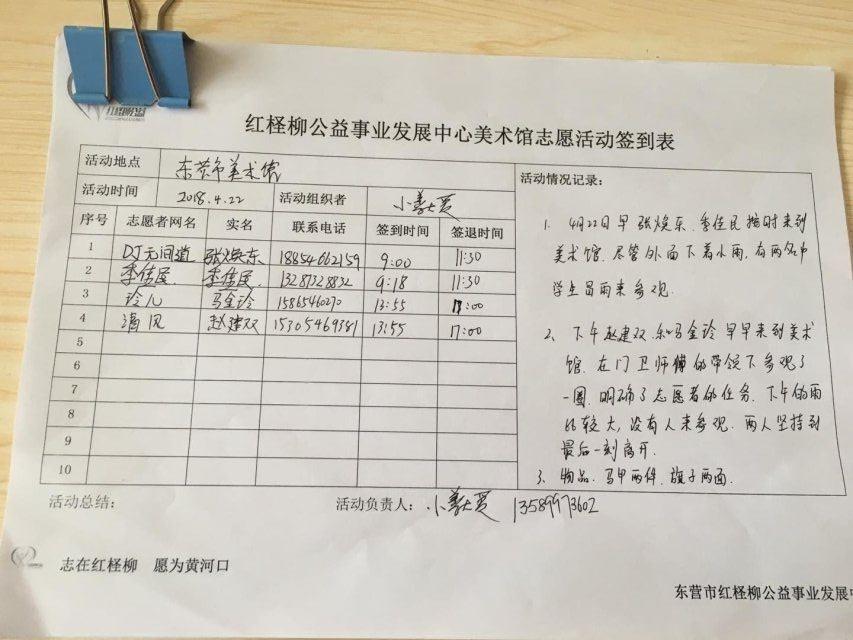 红柽柳公益事业发展中心美术馆志愿活动签到表
活动地点 东营市美术馆
活动时间 2018.4.22 活动组织者 小善大爱
序号 志愿者网名 实名 联系电话 签到时间 签退时间
1 DJ无间道 张焕东 18854662159 9:00 11:30
2 李佳民 李佳民 13287328832 9:18 11:30
3 玲儿 马金玲 15:00
4 清风 赵建双 15305469381 13:55 17:00
5
6
7
8
9
10
活动情况记录:
1. 4月22日早 张焕东、李佳民按时来到
美术馆.尽管外面下着小雨,有两名中
学生冒雨来参观.
2、下午赵建双和马金玲早早来到美术
馆.在门卫师傅的带领下参观了
一圈.明确了志愿者的任务.下午的雨
比较大,没有人来参观.两人坚持到
最后一刻离开.
3、物品.马甲两件.旗子两面.
活动总结: 活动负责人: 小善大爱 13589973602
志在红柽柳 愿为黄河口
东营市红柽柳公益事业发展中